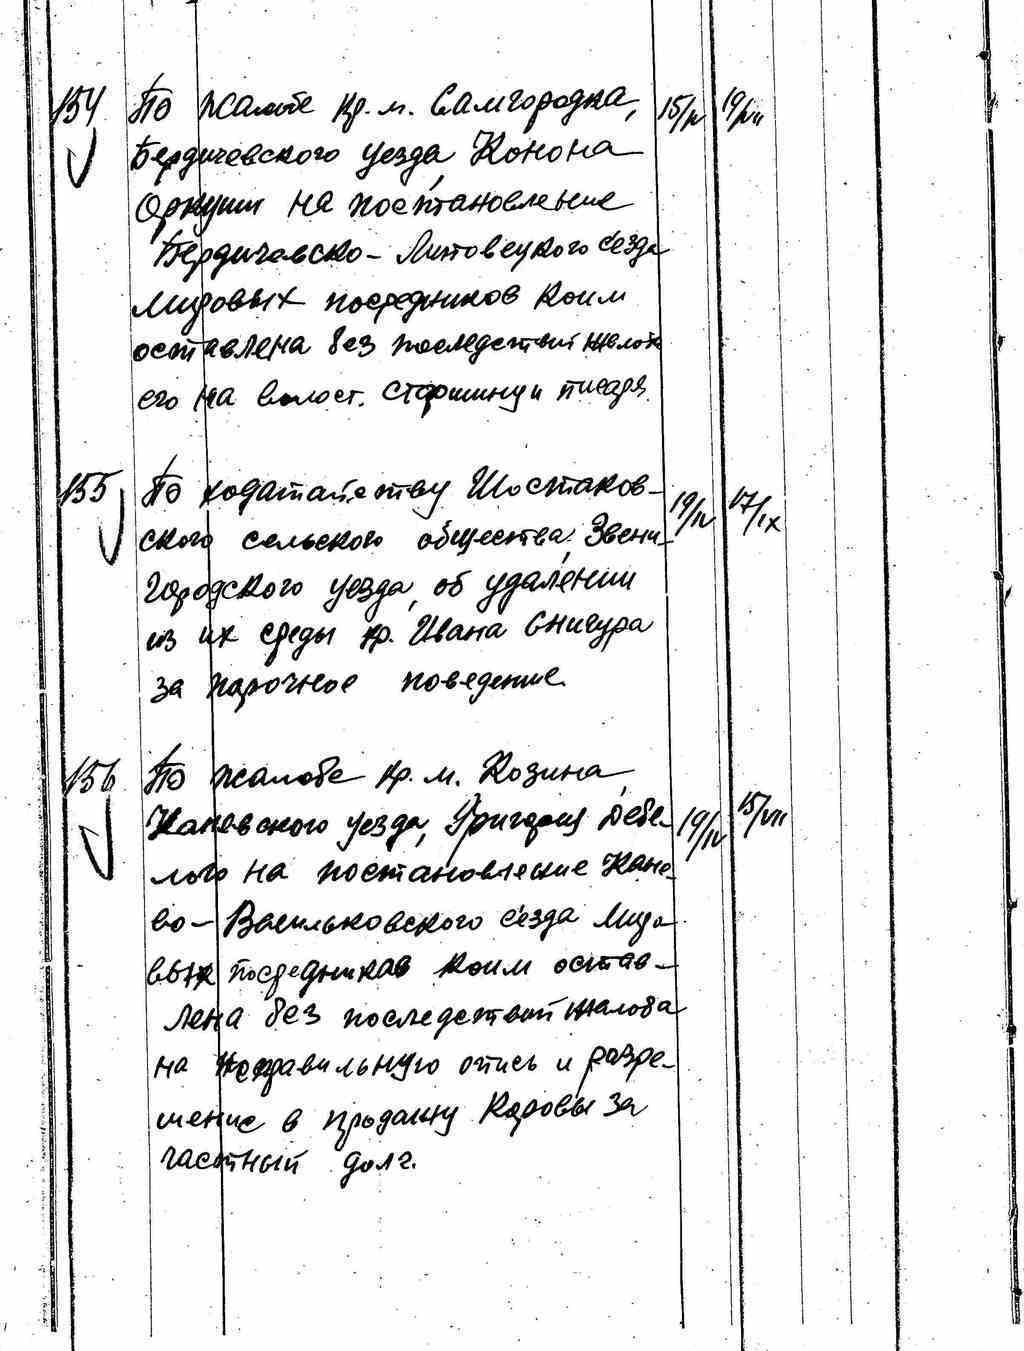 154 По жалобе кр. м. Самгородка, 15/IV 19/VII
Бердичевского уезда, Конона
Оркуши на постановление
Бердичевско-Липовецкого съезда
мировых посредников коим
оставлена без последствий жалоба
его на волост. старшину и писаря.
155 По ходатайству Шостаков- 19/IV 17/IX
ского сельского общества, Звени-
городского уезда, об удалении
из их среды кр. Ивана Снигура
за порочное поведение.
156 По жалобе кр. м. Козина,
Каневского уезда, Григория Дебе- 19/IV 15/VII
лого на постановление Кане-
во-Васильковского съезда миро-
вых посредников коим остав-
лена без последствий жалоба
на неправильную опись и разре-
шение в продажу коровы за
частный долг.